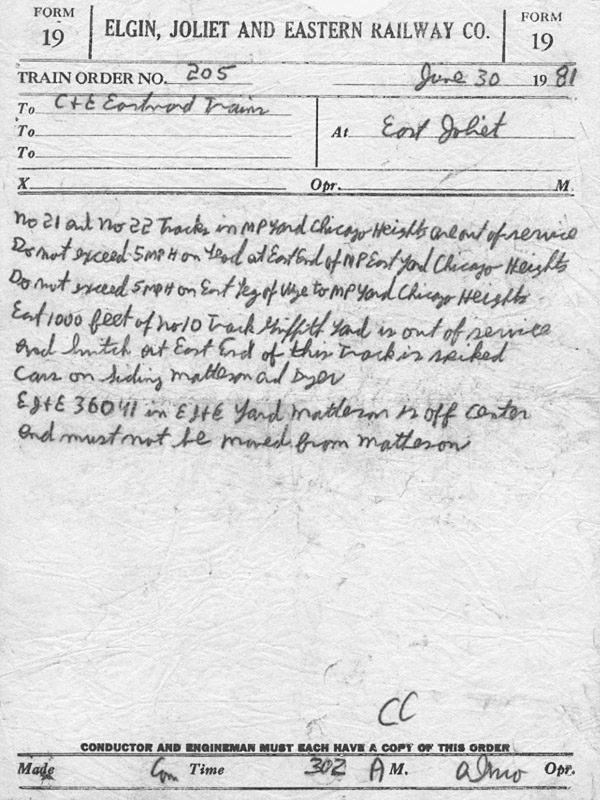 FORM 19 ELGIN, JOLIET AND EASTERN RAILWAY CO. FORM 19
TRAIN ORDER NO. 205 June 30 1981
To C+E Eastward Trains
To At East Joliet
To
X Opr. M
No 21 and No 22 Tracks in MP Yard Chicago Heights are out of service
Do not exceed 5MPH on Lead at East End of MP East Yard Chicago Heights
Do not exceed 5MPH on East Leg of Wye to MP Yard Chicago Heights
East 1000 feet of No 10 Track Griffith Yard is out of service
and Switch at East End of this Track is spiked
Cars on Siding Matteson and Dyer
EJ+E 36041 in EJ+E Yard Matteson is off center
and must not be moved from Matteson
CC
CONDUCTOR AND ENGINEMAN MUST EACH HAVE A COPY OF THIS ORDER
Made Com Time 302 A M. Opr.